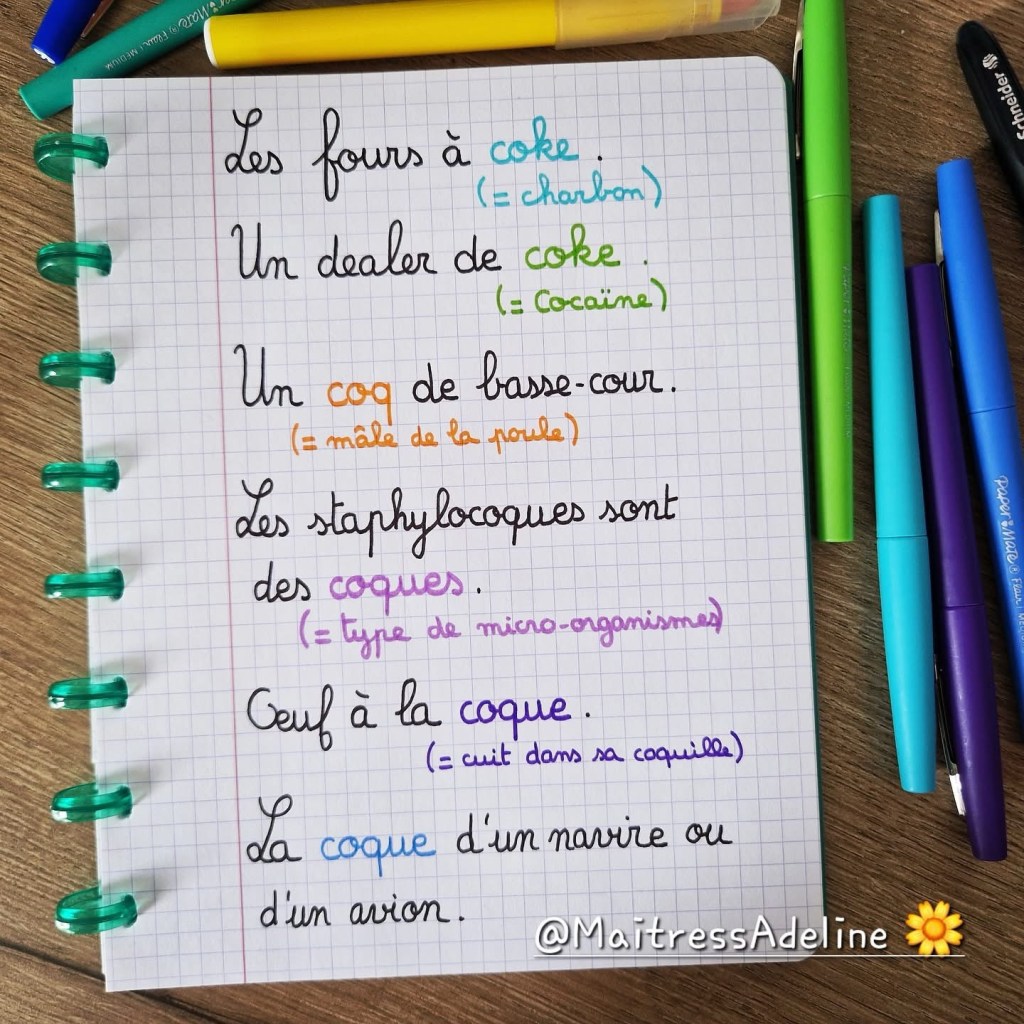 Les fours à coke.
(= charbon)
Un dealer de coke.
(= Cocaïne)
Un coq de basse-cour.
(= mâle de la poule)
Les staphylocoques sont
des coques.
(= type de micro-organismes)
Œuf à la coque.
(= cuit dans sa coquille)
La coque d'un navire ou
d'un avion.
@MaitressAdeline
Paper Mate Flair MEDIUM
Schneider
Paper Mate Flair